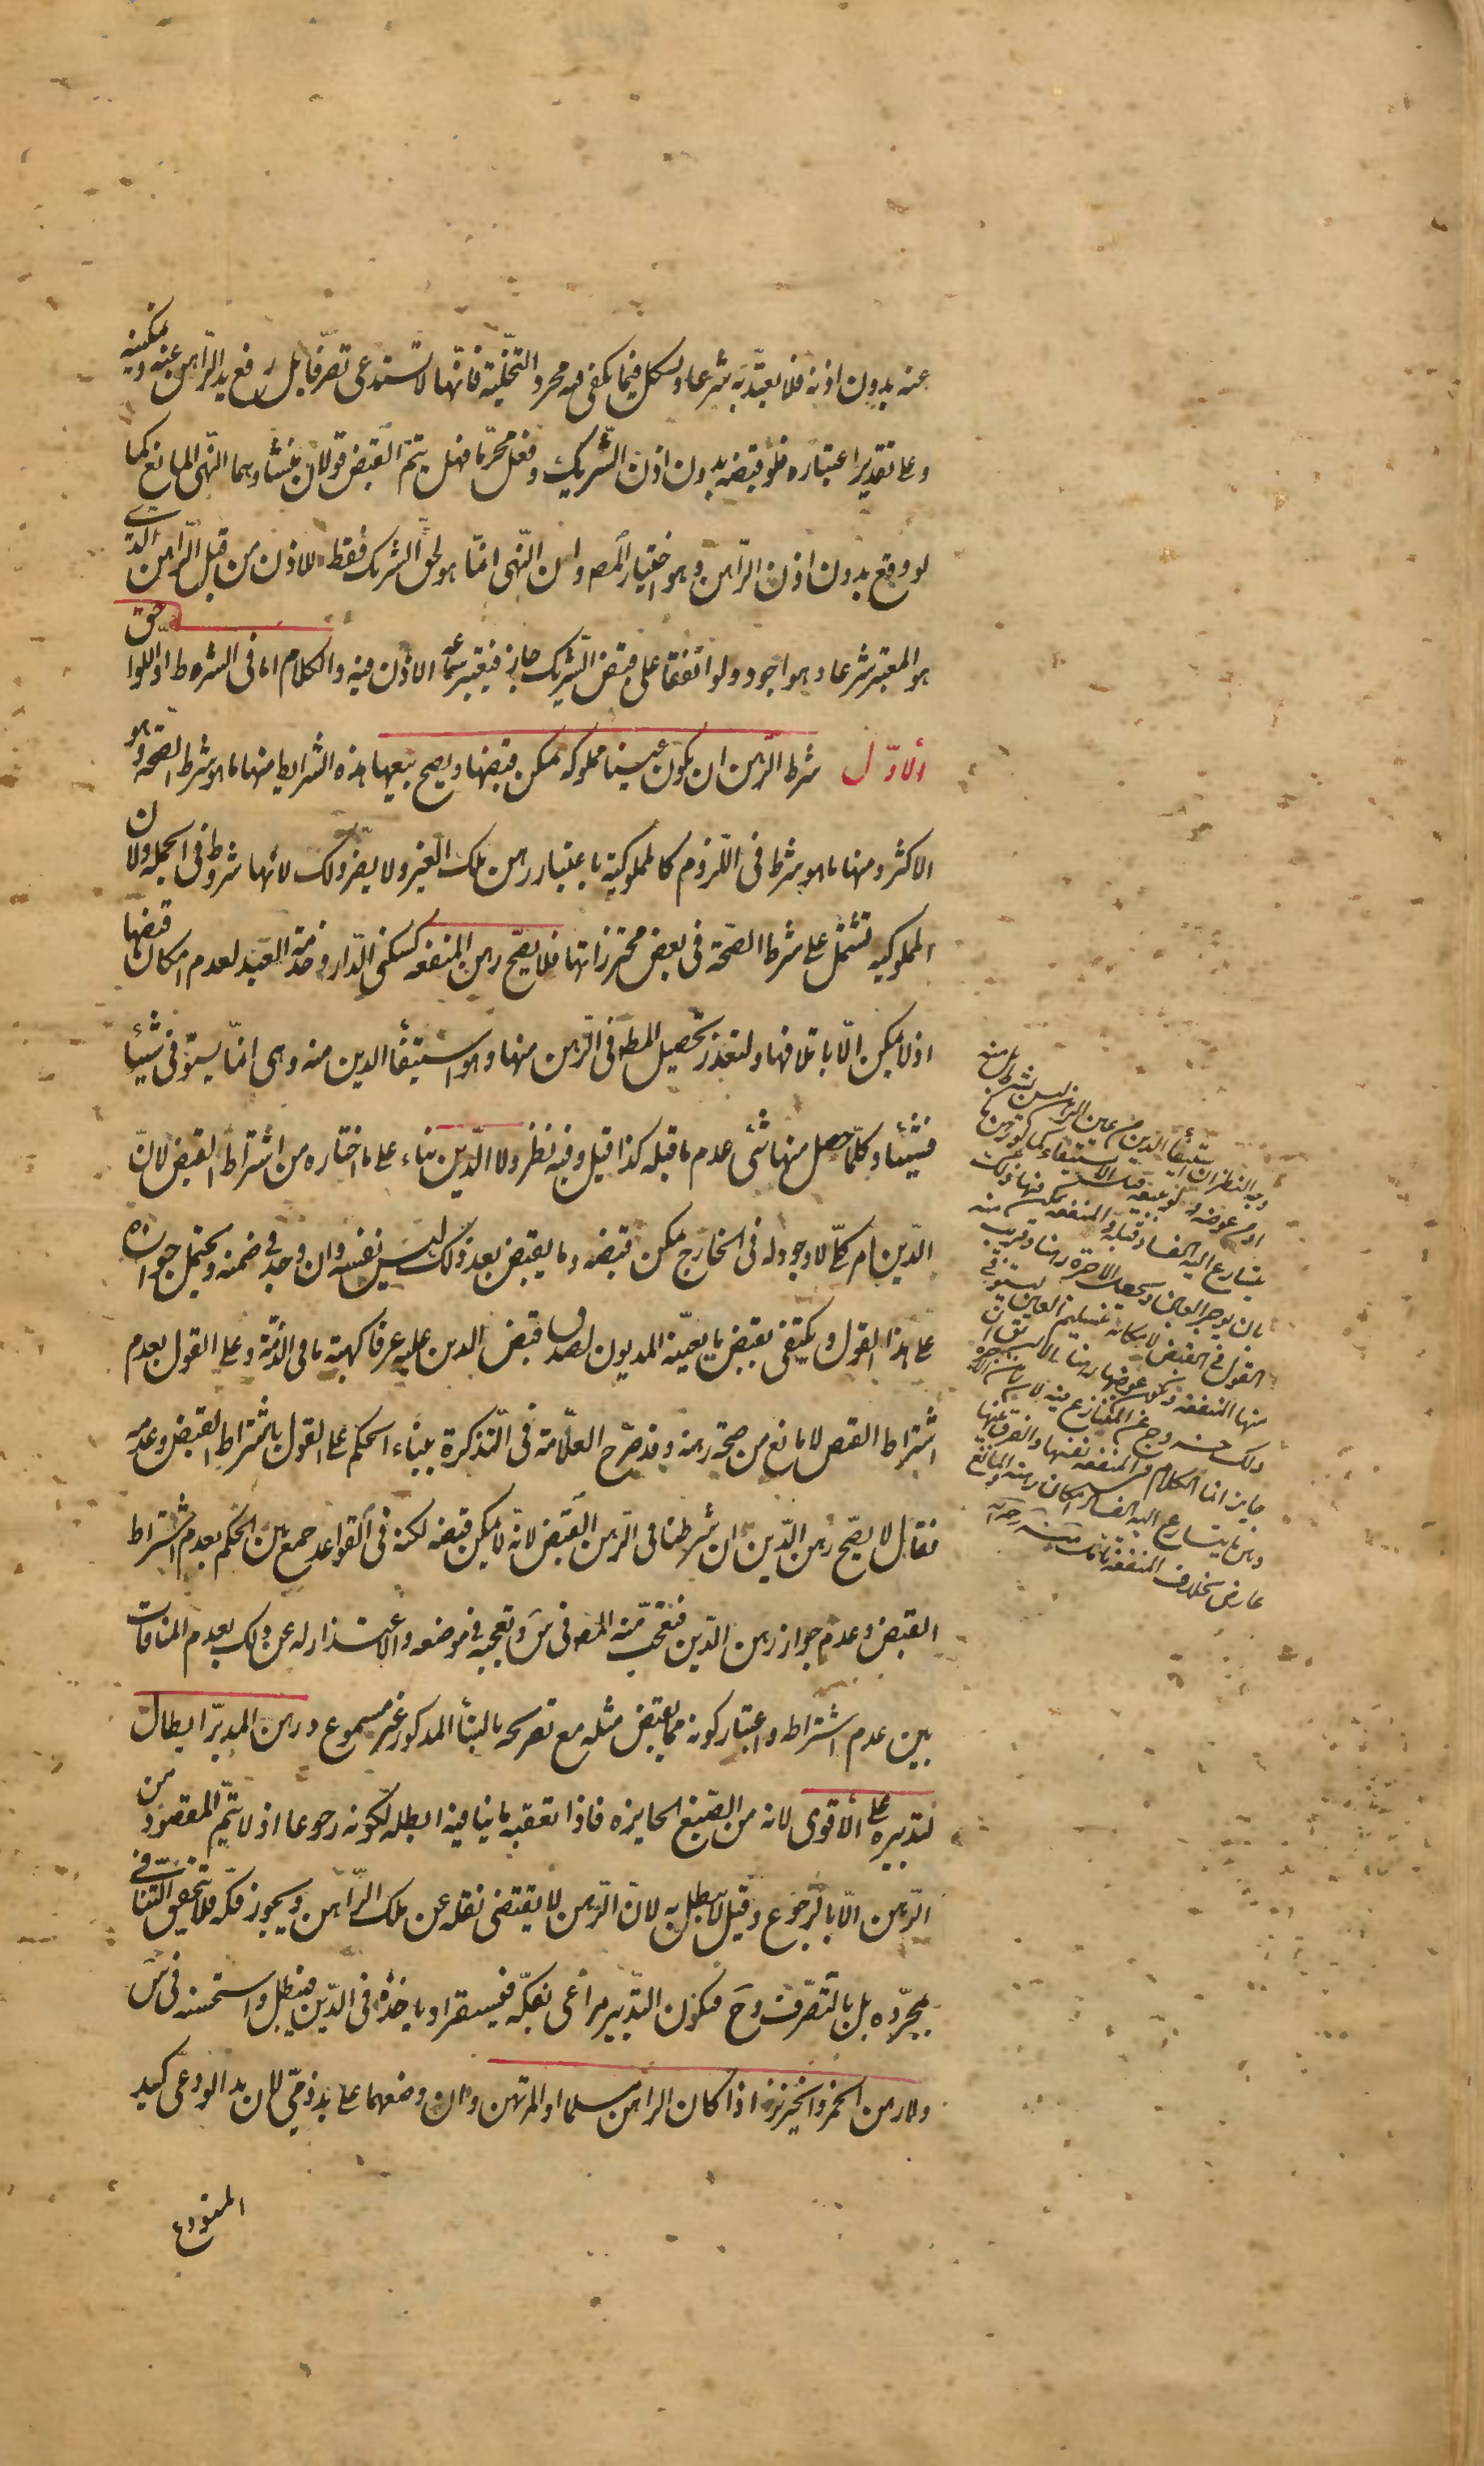 عنه بدون اذنه فلا يعتدّ به شرعا ويشكل فيما يكفى فيه مجرد التّخلية فانّها لا تستدعى تصرّفا بل رفع يد الرّاهن عنه وتمكينه
وعلى تقدير اعتباره فلو قبضه بدون اذن الشّريك وفعل محرّما فهل يتم القبض قولان منشاوهما النّهى المانع كما
لو وقع بدون اذن الرّاهن وهو اختيار المص وان النّهى انّما هو لحق الشريك فقط للاذن من قبل الرّاهن الّذى
هو المعتبر شرعا وهو اجود ولو اتفقا على قبض الشّريك جاز فيعتبر سماع الاذن فيه والكلام اما فى الشروط او اللواحق
الاوّل شرط الرّهن ان يكون عينا مملوكة يمكن قبضها ويصح بيعها هذه الشرايط منها ما هو شرط الصّحة وهو
الاكثر ومنها ما هو شرط فى اللّزوم كالمملوكية باعتبار رهن ملك الغير ولا يضر ذلك لانّها شروط فى الجملة ولان
المملوكيه تشتمل على شرط الصّحة فى بعض محترزاتها فلا يصّح رهن المنفعه كسكنى الدّار وخدمة العبد لعدم امكان قبضها
اذ لا يمكن الّا باتلافها ولتعذر تحصيل المطه فى الرّهن منها وهو استيفأ الدين منه وهى انّما يستوفى شيئا
فشيئا وكلّما حصل منها شئ عدم ما قبله كذا قيل وفيه نظر ولا الدّين بناء على ما اختاره من اشتراط القبض لانّ
الدّين امر كلّى لا وجود له فى الخارج يمكن قبضه وما يقبض بعد ذلك ليس نفسه وان وجد فى ضمنه ويحتمل جوازه
على هذا القول ويكتفى بقبض ما يعيّنه المديون لصدق قبض الدين عليه عرفا كهبة ما فى الذمّة وعلى القول بعدم
اشتراط القبض لا مانع من صحّة رهنه وقد صرّح العلّامة فى التّذكرة ببناء الحكم على القول باشتراط القبض وعدمه
فقال لا يصّح رهن الدّين ان شرطنا فى الرّهن القبض لانّه لا يمكن قبضه لكنه فى القواعد جمع بين الحكم بعدم اشتراط
القبض وعدم جواز رهن الدّين فتعجّب منه المص فى س وتعجبه فى موضعه والاعتذار له عن ذلك بعدم المنافات
بين عدم اشتراطه واعتبار كونه مما يقبض مثله مع تصريحه بالبنأ المذكور غير مسموع ورهن المدبّر ابطال
لتدبيره على الاقوى لانه من الصّيغ الجايزه فاذا تعقبه ما ينافيه ابطله لكونه رجوعا اذ لا يتم المقصود من
الرّهن الّا بالرّجوع وقيل لا يبطل به لانّ الرّهن لا يقتضى نقله عن ملك الرّاهن ويجوز فكّه فلا يتحقق التّنافى
بمجرّده بل بالتّصّرف وح فيكون التّدبير مراعى بفكّه فيستقر او ياخذه فى الدّين فيبطل واستحسنه فى س
ولا رهن الخمر والخنزير اذا كان الراهن مسلما او المرتهن وان وضعهما على يد ذمّى لان يد الودعى كيد
المستودع
وجه النظر ان استيفأ الدين من عين الرهن ليس بشرط بل منه
او من عوضه
يتسارع اليه الفساد قبله والمنفعه يمكن فيها ذلك
بان يوجر العين ويجعل الاجرة رهنا
القول فى القبض لامكانه بتسليم العين ليستوفى
منها المنفعه ويكون عوضها رهنا
جايز انما الكلام فى المنفعه نفسها والفرق بينها
وبين ما يتسارع اليه الفساد امكان رهنه والمانع
عارض بخلاف المنفعه